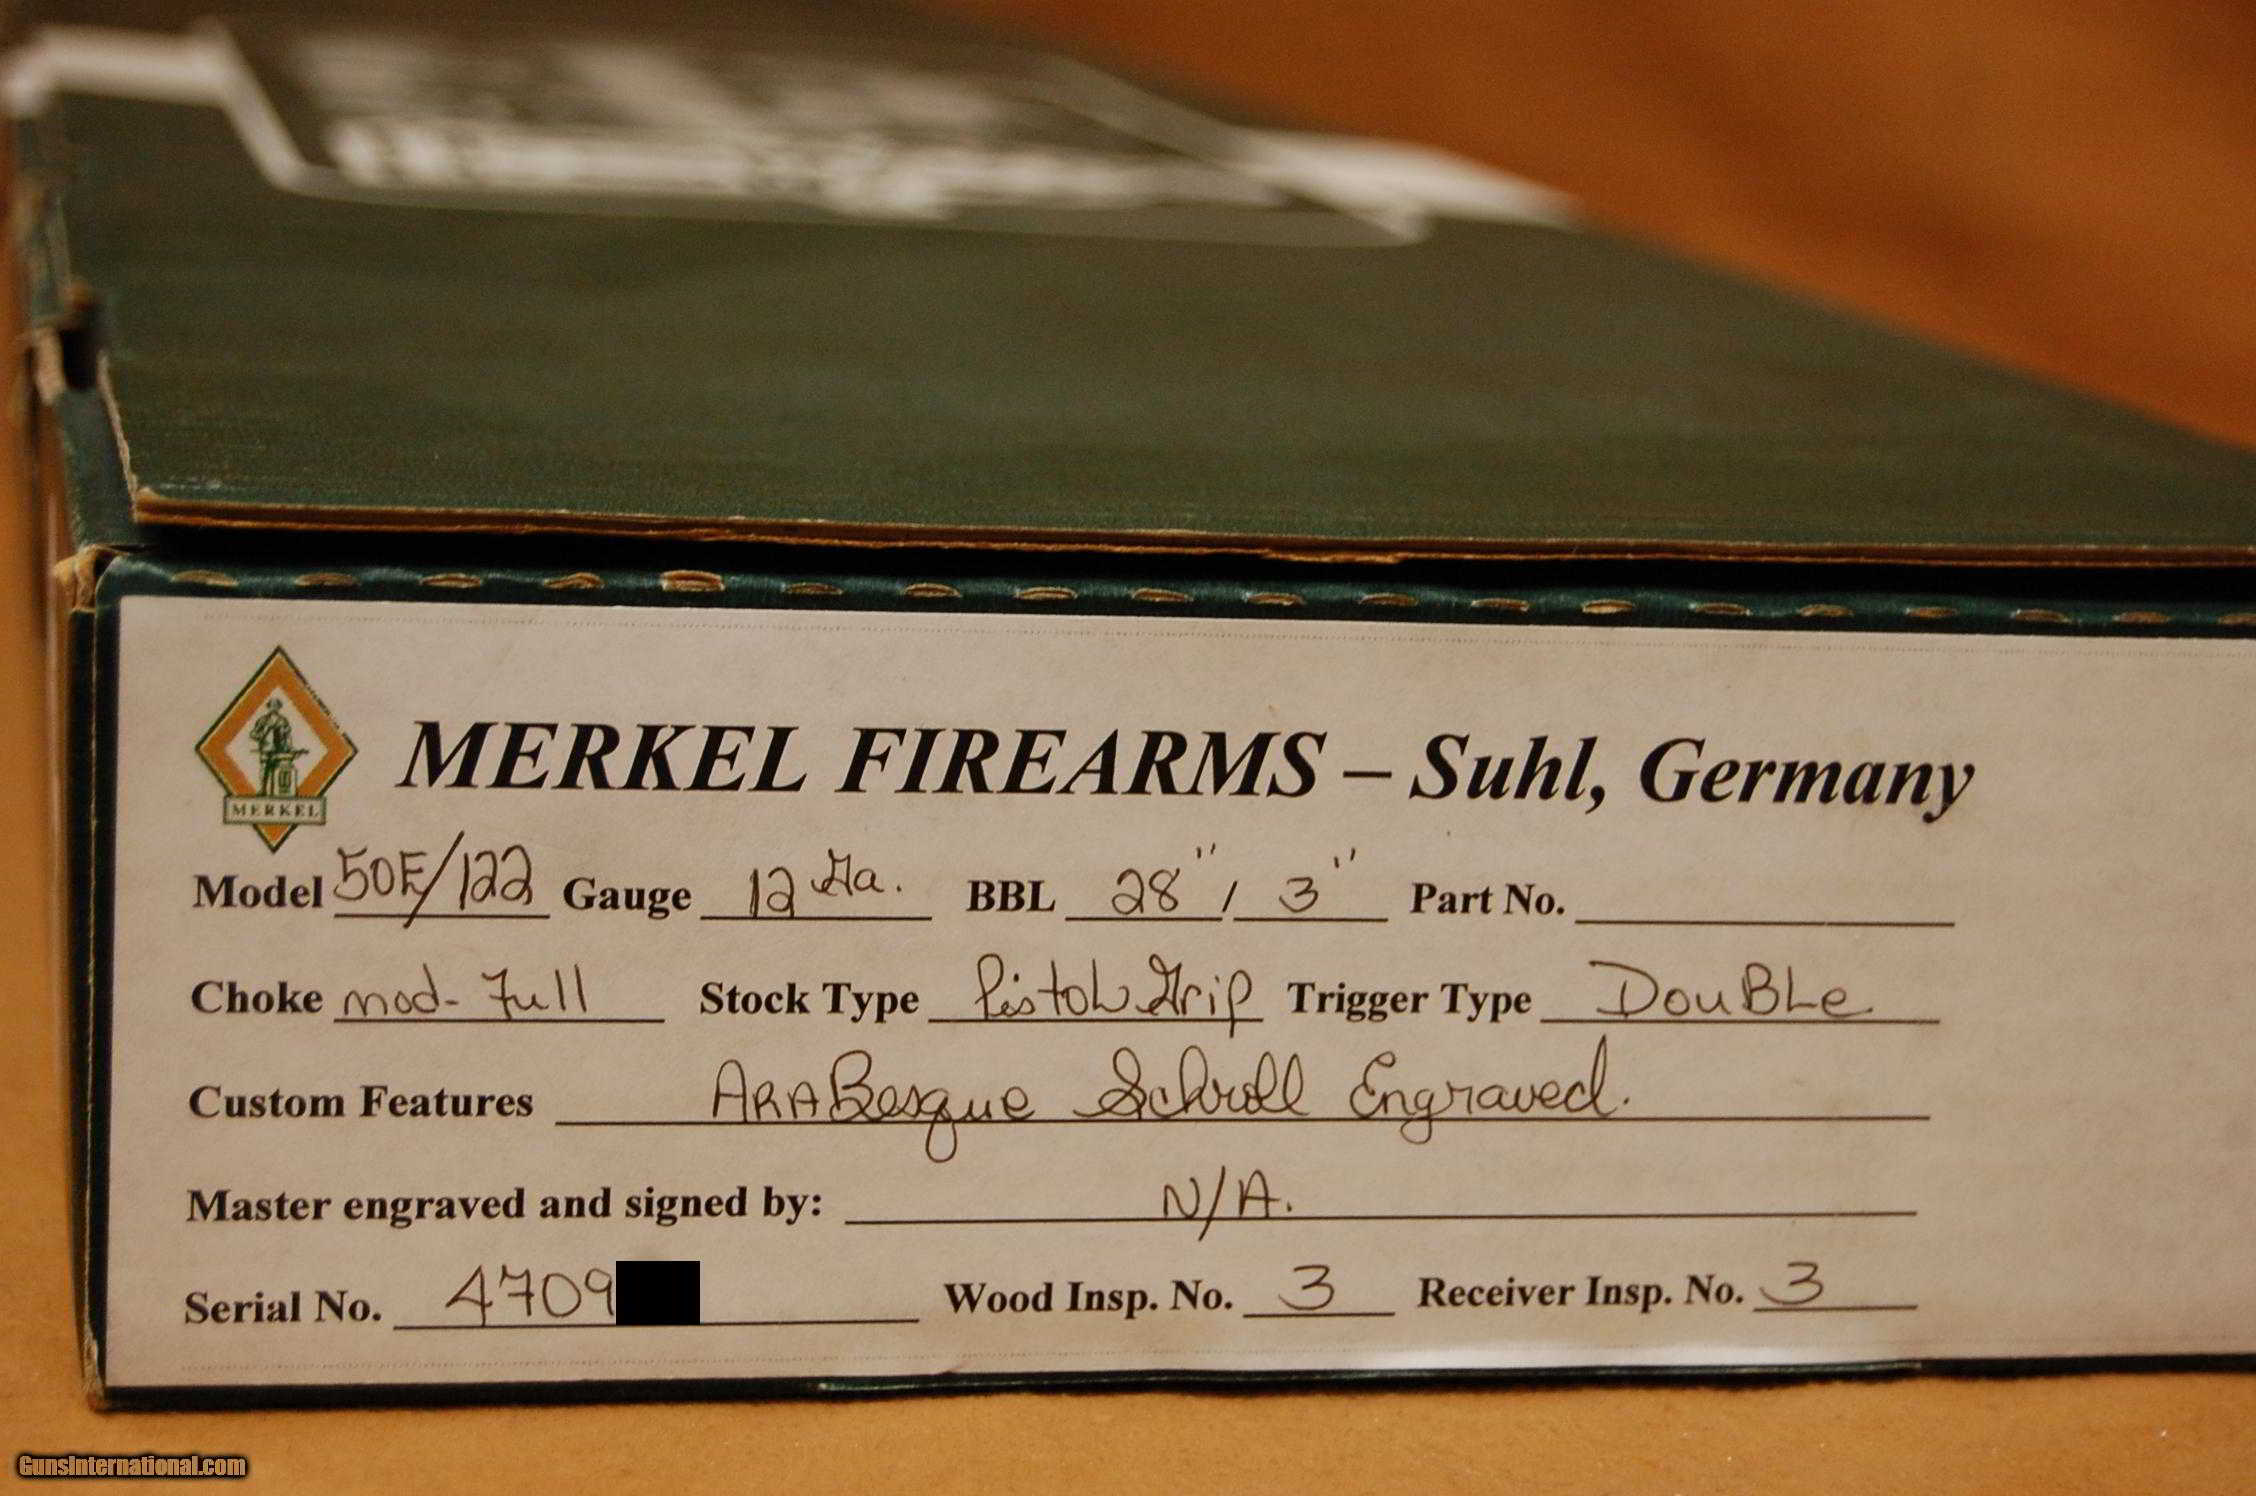 MERKEL
MERKEL FIREARMS – Suhl, Germany
Model 50E/122 Gauge 12 Ga. BBL 28" / 3" Part No.
Choke mod-Full Stock Type Pistol Grip Trigger Type DouBLe
Custom Features ARABesque Schroll Engraved.
Master engraved and signed by: N/A.
Serial No. 4709 Wood Insp. No. 3 Receiver Insp. No. 3
GunsInternational.com